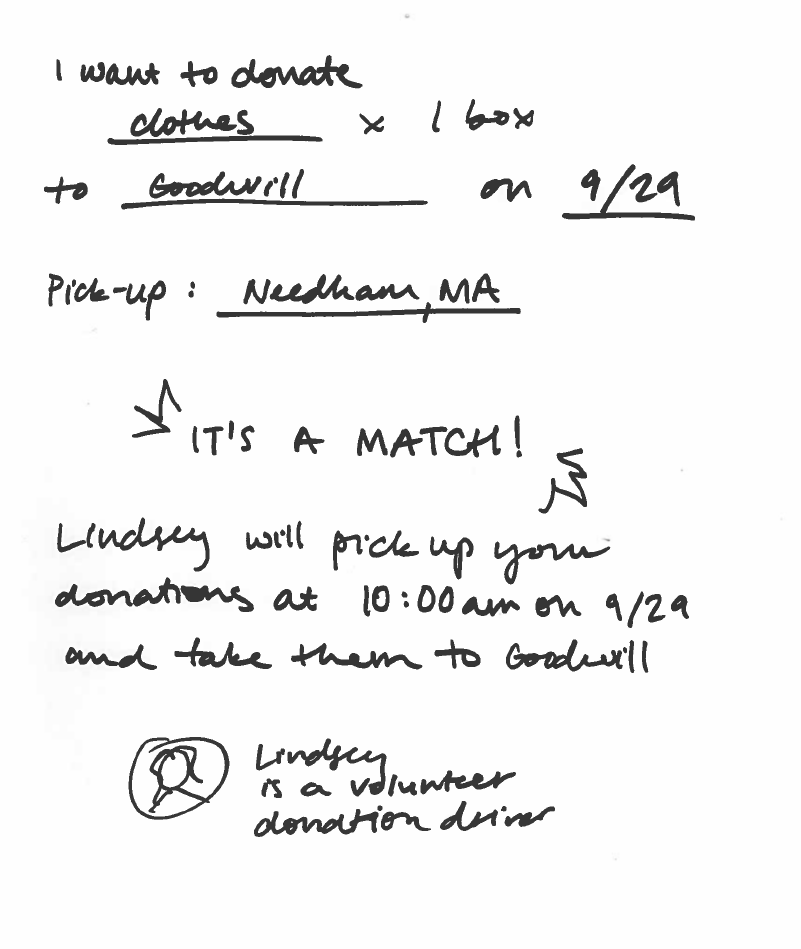 I want to donate
clothes x 1 box
to Goodwill on 9/29
Pick-up: Needham, MA
IT'S A MATCH!
Lindsey will pick up your
donations at 10:00am on 9/29
and take them to Goodwill
Lindsey
is a volunteer
donation driver